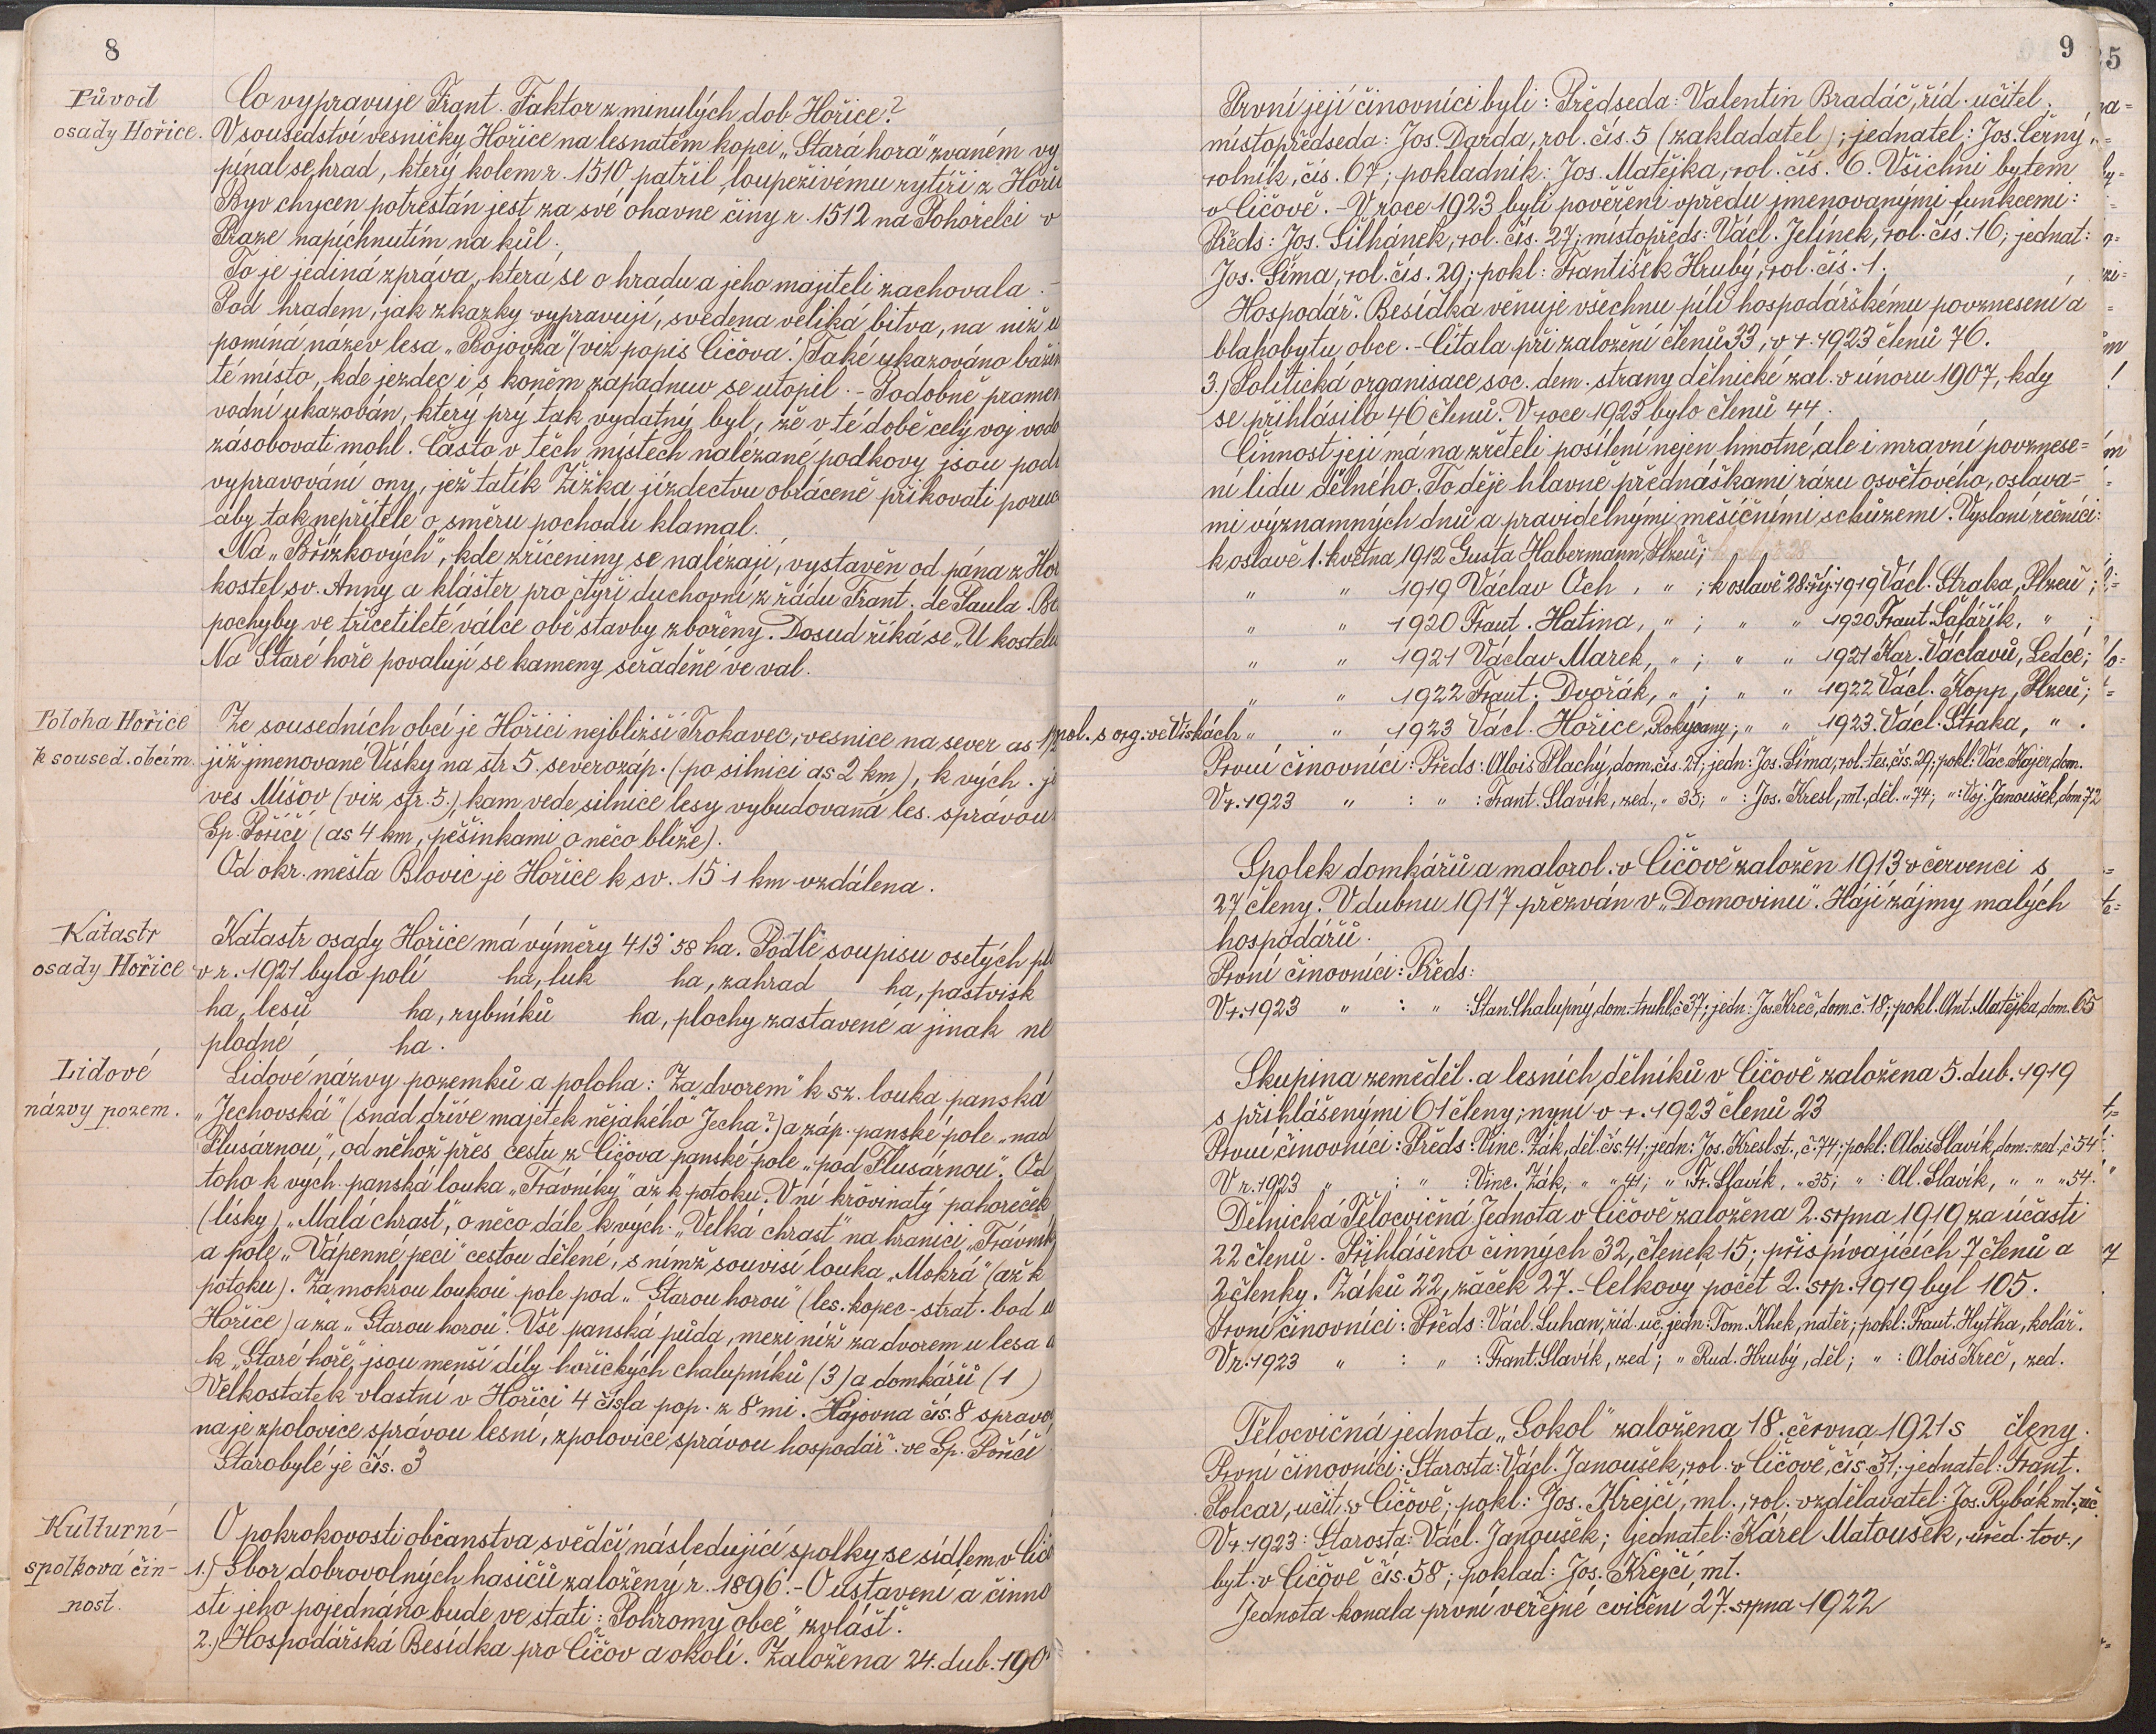 8
Původ
osady Hořice.
Co vypravuje Frant. Faktor z minulých dob Hořice?
V sousedství vesničky Hořice na lesnatém kopci „Stará hora" zvaném vy
pínal se hrad, který kolem r. 1510 patřil loupeživému rytíři z Hoři
Byv chycen potrestán jest za své ohavné činy r. 1512 na Pohořelci v
Praze napíchnutím na kůl.
To je jediná zpráva, která se o hradu a jeho majiteli zachovala. –
Pod hradem, jak zkazky vypravují, svedena veliká bitva, na niž u
pomíná název lesa „Bojovka" (viz popis Číčova!) Také ukazováno bažin
té místo, kde jezdec i s koněm zapadnuv se utopil. – Podobně pramen
vodní ukazován, který prý tak vydatný byl, že v té době celý voj vodo
zásobovati mohl. Často v těch místech nalézané podkovy jsou podl
vypravování ony, jež tatík Žižka jízdectvu obráceně přikovati poruč
aby tak nepřítele o směru pochodu klamal.
Na „Břízkových", kde zříceniny se nalézají, vystavěn od pána z Hoř
kostel sv. Anny a klášter pro čtyři duchovní z řádu Frant. de Paula. Be
pochyby ve třicetileté válce obě stavby zbořeny. Dosud říká se „U kostela
Na Staré hoře povalují se kameny seřaděné ve val.
Poloha Hořice
k soused. obcím.
Ze sousedních obcí je Hořici nejbližší Trokavec, vesnice na sever as 1/2
již jmenované Vísky na str 5. severozáp. (po silnici as 2 km), k vých. je
ves Míšov (viz str. 5.), kam vede silnice lesy vybudovaná les. správou
Sp. Poříčí (as 4 km, pěšinkami o něco blíže).
Od okr. města Blovic je Hořice k sv. 15·1 km vzdálena.
Katastr
osady Hořice
Katastr osady Hořice má výměry 413·58 ha. Podle soupisu osetých pl
v r. 1921 bylo polí ha, luk ha, zahrad ha, pastvisk
ha, lesů ha, rybníků ha, plochy zastavené a jinak ne
plodné ha.
Lidové
názvy pozem.
Lidové názvy pozemků a poloha: „Za dvorem" k sz. louka panská
„Jechovská" (snad dříve majetek nějakého Jecha?) a záp. panské pole „nad
Flusárnou", od něhož přes cestu z Číčova panské pole „pod Flusárnou". Od
toho k vých. panská louka „Trávníky" až k potoku. V ní křovinatý pahoreček
(lísky) „Malá chrast", o něco dále k vých. „Velká chrast" na hranici „Trávník
a pole „Vápenné peci" cestou dělené, s nímž souvisí louka „Mokrá" (až k
potoku). „Za mokrou loukou" pole pod „Starou horou" (les. kopec – strat. bod u
Hořice) a za „Starou horou". Vše panská půda, mezi níž za dvorem u lesa a
k „Staré hoře" jsou menší díly hořických chalupníků (3) a domkářů (1)
Velkostatek vlastní v Hořici 4 čísla pop. z 8mi. Hájovna čís. 8 spravo
na je zpolovice správou lesní, zpolovice správou hospodář. ve Sp. Poříčí
Starobylé je čís. 3
Kulturní-
spolková čin-
nost.
O pokrokovosti občanstva svědčí následující spolky se sídlem v Číčo
1.) Sbor dobrovolných hasičů založený r. 1896. – O ustavení a činno
sti jeho pojednáno bude ve stati: „Pohromy obce" zvlášť.
2.) Hospodářská Besídka pro Číčov a okolí. Založena 24. dub. 190
9
První její činovníci byli: Předseda: Valentin Bradáč, říd. učitel;
místopředseda: Jos. Darda, rol. čís. 5 (zakladatel); jednatel: Jos. Černý,
rolník, čís. 67; pokladník: Jos. Matějka, rol. čís. 6. Všichni bytem
v Číčově. – V roce 1923 byli pověřeni vpředu jmenovanými funkcemi:
Předs: Jos. Šilhánek, rol. čís. 27; místopředs: Václ. Jelínek, rol. čís. 16; jednat:
Jos. Šíma, rol. čís. 29; pokl: František Hrubý, rol. čís. 1.
Hospodář. Besídka věnuje všechnu píli hospodářskému povznesení a
blahobytu obce. – Čítala při založení členů 33, v r. 1923 členů 76.
3.) Politická organisace soc. dem. strany dělnické zal. v únoru 1907, kdy
se přihlásilo 46 členů. V roce 1923 bylo členů 44;
Činnost její má na zřeteli posílení nejen hmotné, ale i mravní povznese=
ní lidu dělného. To děje hlavně přednáškami rázu osvětového, oslava=
mi významných dnů a pravidelnými měsíčními schůzemi. Vyslaní řečníci:
k oslavě 1. května 1912 Gusta Habermann, Plzeň;
" " 1919 Václav Och, " ; k oslavě 28. říj. 1919 Václ. Straka, Plzeň;
" " 1920 Frant. Hatina, " ; " " 1920 Frant. Šafářík, " ;
" " 1921 Václav Marek, " ; " " 1921 Kar. Václavů, Ledce;
" " 1922 Frant. Dvořák, " ; " " 1922 Václ. Kopp, Plzeň;
pol. s org. ve Vískách " " 1923 Václ. Hořice, Rokycany; " " 1923 Václ. Straka, " .
První činovníci: Předs: Alois Plachý, dom. čís. 21; jedn: Jos. Šíma, rol.-tes, čís. 29; pokl: Vác. Kajer, dom.
V r. 1923 " : " : Frant. Slavík, zed, " 35; " : Jos. Kresl, ml., děl. " 74; " : Voj. Janoušek, dom. 72
Spolek domkářů a malorol. v Číčově založen 1913 v červenci s
27 členy. V dubnu 1917 přezván v „Domovinu". Hájí zájmy malých
hospodářů.
První činovníci: Předs:
V r. 1923 " : " : Stan. Chalupný, dom.-truhl. č 37; jedn: Jos. Kreč, dom. č. 18; pokl. Ant. Matějka, dom. 65
Skupina zeměděl. a lesních dělníků v Číčově založena 5. dub. 1919
s přihlášenými 61 členy; nyní v r. 1923 členů 23
První činovníci: Předs: Vinc. Žák, děl. čís. 41; jedn: Jos. Kresl st., č. 74; pokl: Alois Slavík, dom.-zed, č 54
V r. 1923 " : " : Vinc. Žák, " " 41; " Fr. Slavík, " 35; " : Al. Slavík, " " " 54.
Dělnická Tělocvičná Jednota v Číčově založena 2. srpna 1919 za účasti
22 členů. Přihlášeno činných 32, členek 15; přispívajících 7 členů a
2 členky. Žáků 22, žaček 27. – Celkový počet 2. srp. 1919 byl 105.
První činovníci: Předs: Václ. Luhan, říd. uč, jedn: Tom. Khek, natěr; pokl: Frant. Hýtha, kolář.
V r. 1923 " : " : Frant. Slavík, zed; " Rud. Hrubý, děl; " : Alois Kreč, zed.
Tělocvičná jednota „Sokol" založena 18. června 1921 s členy.
První činovníci: Starosta: Václ. Janoušek, rol. v Číčově, čís. 31; jednatel: Frant.
Polcar, učit. v Číčově; pokl: Jos. Krejčí, ml., rol. vzdělavatel: Jos. Rybák ml., uč
V r. 1923: Starosta: Václ. Janoušek; jednatel: Karel Matoušek, úřed. tov.,
byt. v Číčově čís. 58; poklad: Jos. Krejčí, ml.
Jednota konala první veřejné cvičení 27. srpna 1922
25